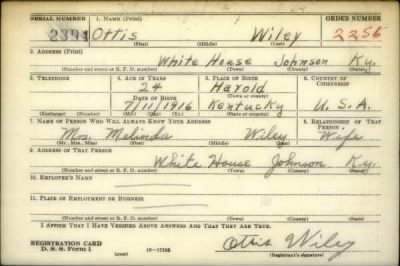 SERIAL NUMBER 1. NAME (Print) ORDER NUMBER
2394 Ottis Wiley 2256
(First) (Middle) (Last)
2. ADDRESS (Print)
White House Johnson Ky.
(Number and street or R. F. D. number) (Town) (County) (State)
3. TELEPHONE 4. AGE IN YEARS 5. PLACE OF BIRTH 6. COUNTRY OF CITIZENSHIP
24 Harold
DATE OF BIRTH (Town or county)
7/11/1916 Kentucky U.S.A.
(Exchange) (Number) (Mo.) (Day) (Yr.) (State or country)
7. NAME OF PERSON WHO WILL ALWAYS KNOW YOUR ADDRESS 8. RELATIONSHIP OF THAT PERSON
Mrs. Melinda Wiley Wife
(Mr., Mrs., Miss) (First) (Middle) (Last)
9. ADDRESS OF THAT PERSON
White House Johnson Ky.
(Number and street or R. F. D. number) (Town) (County) (State)
10. EMPLOYER'S NAME
11. PLACE OF EMPLOYMENT OR BUSINESS
(Number and street or R. F. D. number) (Town) (County) (State)
I AFFIRM THAT I HAVE VERIFIED ABOVE ANSWERS AND THAT THEY ARE TRUE.
REGISTRATION CARD
D. S. S. Form 1 (over) 16-17105 Ottis Wiley
(Registrant's signature)